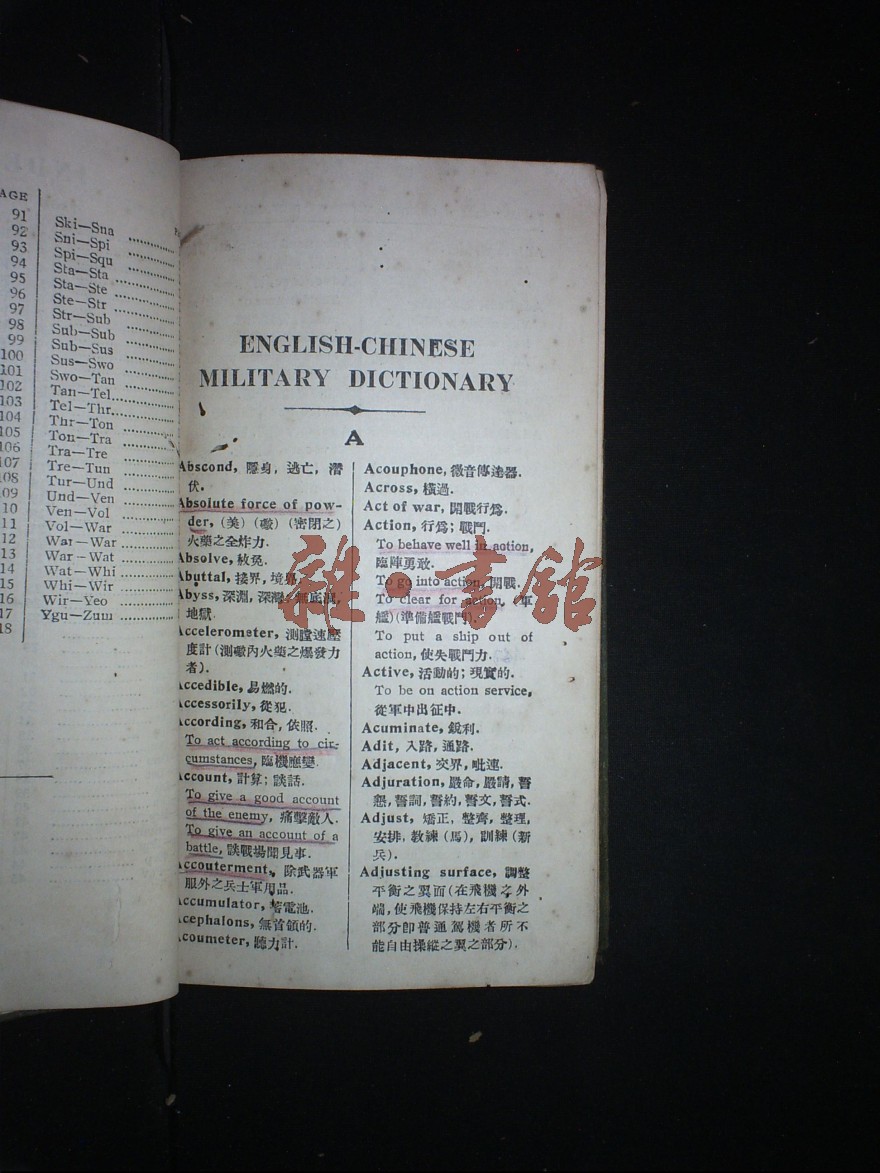 AGE
91
92
93
94
95
96
97
98
99
100
101
102
103
104
105
106
107
108
109
10
11
12
13
14
15
16
17
18
Ski—Sna
Sni—Spi
Spi—Squ
Sta—Sta
Sta—Ste
Ste—Str
Str—Sub
Sub—Sub
Sub—Sus
Sus—Swo
Swo—Tan
Tan—Tel
Tel—Thr
Thr—Ton
Ton—Tra
Tra—Tre
Tre—Tun
Tur—Und
Und—Ven
Ven—Vol
Vol—War
War—War
War—Wat
Wat—Whi
Whi—Wir
Wir—Yeo
Ygu—Zum
ENGLISH-CHINESE
MILITARY DICTIONARY
A
Abscond, 隱身, 逃亡, 潛
伏.
Absolute force of pow-
der, (美) (礮) (密閉之)
火藥之全炸力.
Absolve, 赦免.
Abuttal, 接界, 境界.
Abyss, 深淵, 深潭, 無底洞,
地獄.
Accelerometer, 測膛速壓
度計(測礮內火藥之爆發力
者).
Accedible, 易燃的.
Accessorily, 從犯.
According, 和合, 依照.
To act according to cir-
cumstances, 臨機應變.
Account, 計算; 談話.
To give a good account
of the enemy, 痛擊敵人.
To give an account of a
battle, 談戰場聞見事.
Accouterment, 除武器軍
服外之兵士軍用品.
Accumulator, 蓄電池.
Acephalons, 無首領的.
Acoumeter, 聽力計.
Acouphone, 微音傳達器.
Across, 橫過.
Act of war, 開戰行爲.
Action, 行爲; 戰鬥.
To behave well in action,
臨陣勇敢.
To go into action, 開戰.
To clear for action, (軍
艦)(準備艦戰鬥).
To put a ship out of
action, 使失戰鬥力.
Active, 活動的; 現實的.
To be on action service,
從軍中出征中.
Acuminate, 銳利.
Adit, 入路, 通路.
Adjacent, 交界, 毗連.
Adjuration, 嚴命, 嚴請, 誓
懇, 誓詞, 誓約, 誓文, 誓式.
Adjust, 矯正, 整齊, 整理,
安排, 教練 (馬), 訓練 (新
兵).
Adjusting surface, 調整
平衡之翼面(在飛機之外
端, 使飛機保持左右平衡之
部分卽普通駕機者所不
能自由操縱之翼之部分).
雜·書館